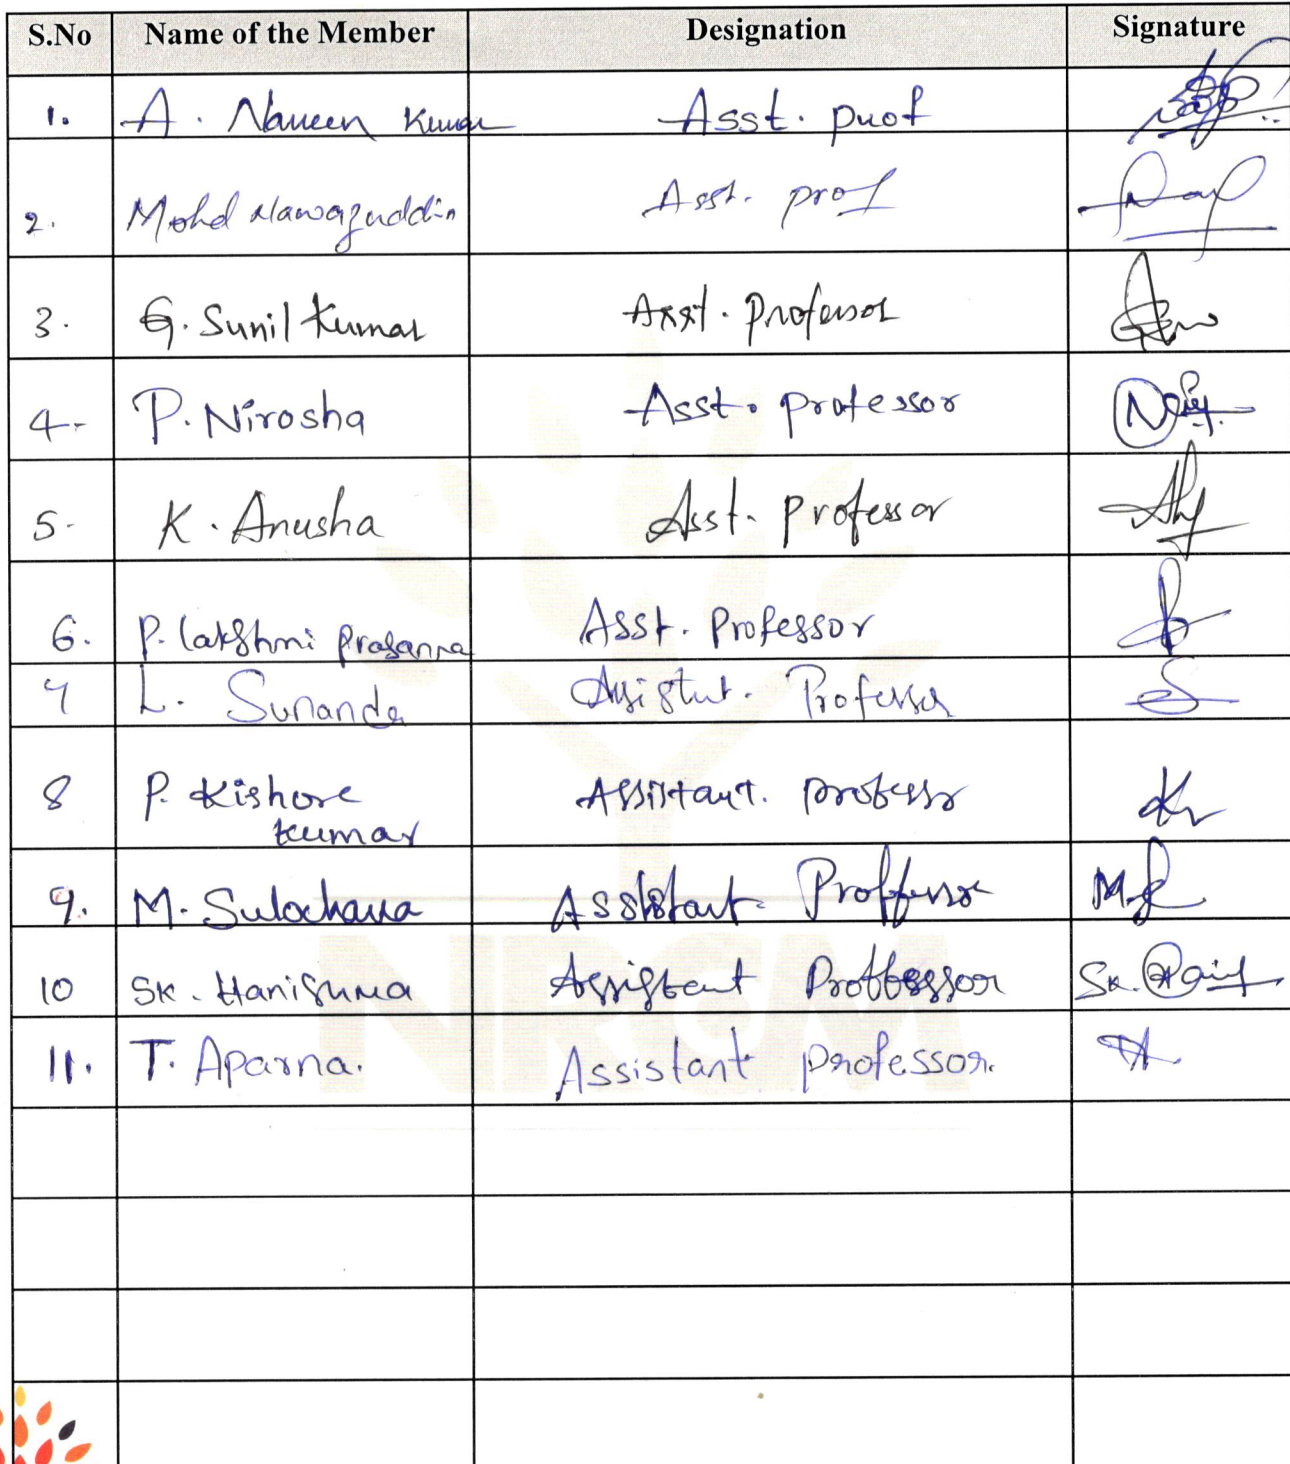 S.No Name of the Member Designation Signature
1. A. Naveen Kumar Asst. prof
2. Mohd Nawazuddin Asst. prof
3. G. Sunil Kumar Asst. Professor
4. P. Nirosha Asst. professor
5. K. Anusha Asst. Professor
6. P. Lakshmi Prasanna Asst. Professor
7 L. Sunanda Assistant. Professor
8 P. Kishore Assistant. professor
Kumar
9. M. Sulochana Assistant Proffessor
10 SK. Hanishma Assistant Proffessor Sk.
11. T. Aparna. Assistant professor.
NRCM